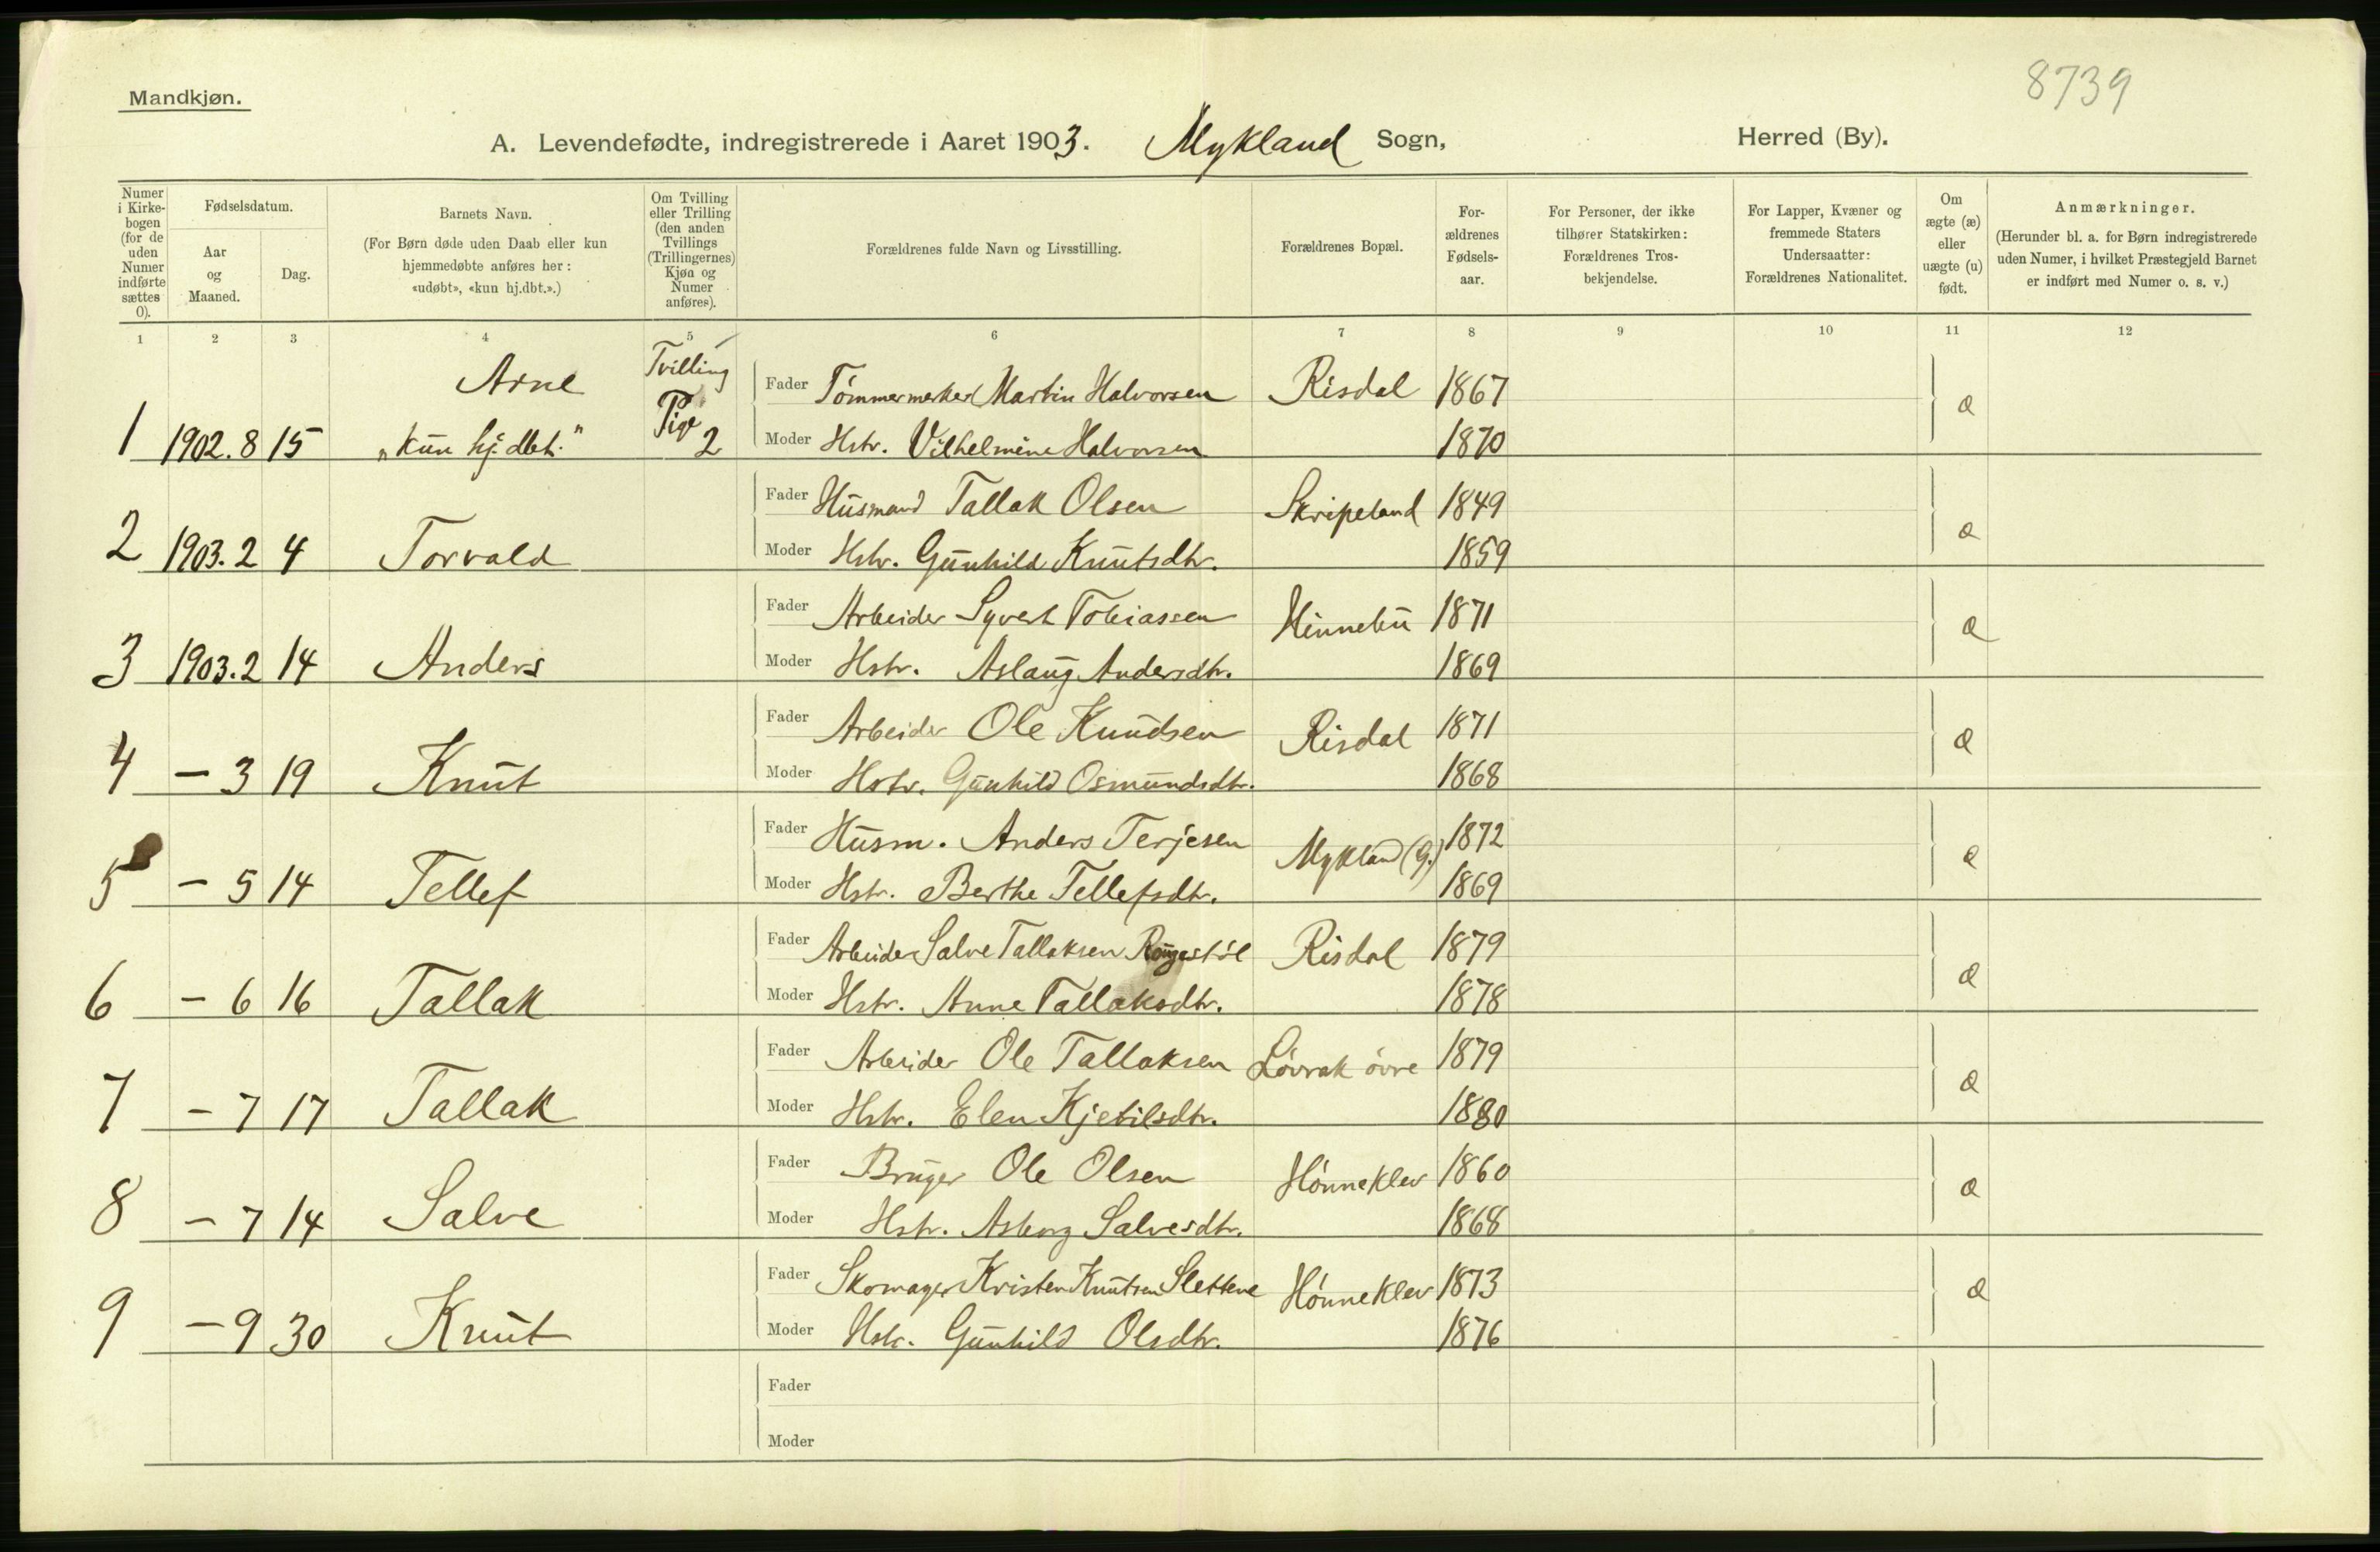 8739
Mandkjøn.
A. Levendefødte, indregistrerede i Aaret 1903. Mykland Sogn, Herred (By).
Numer i Kirkebogen (for de uden Numer indførte sættes 0).
Fødselsdatum.
Aar og Maaned.
Dag.
Barnets Navn.
(For Børn døde uden Daab eller kun hjemmedøbte anføres her: «udøbt», «kun hj.dbt.».)
Om Tvilling eller Trilling (den anden Tvillings (Trillingernes) Kjøn og Numer anføres).
Forældrenes fulde Navn og Livsstilling.
Forældrenes Bopæl.
Forældrenes Fødselsaar.
For Personer, der ikke tilhører Statskirken: Forældrenes Trosbekjendelse.
For Lapper, Kvæner og fremmede Staters Undersaatter: Forældrenes Nationalitet.
Om ægte (æ) eller uægte (u) født.
Anmærkninger.
(Herunder bl. a. for Børn indregistrerede uden Numer, i hvilket Præstegjeld Barnet er indført med Numer o. s. v.)
1 2 3 4 5 6 7 8 9 10 11 12
Arne Tvilling Fader Tømmermerker Martin Halvorsen Risdal 1867 æ
1 1902. 8 15 „kun hj. dbt." Pige 2 Moder Hstr. Vilhelmine Halvorsen 1870
Fader Husmand Tallak Olsen Skripeland 1849 æ
2 1903. 2 4 Torvald Moder Hstr. Gunhild Knutsdtr. 1859
Fader Arbeider Syvert Tobiassen Hinnebu 1871 æ
3 1903. 2 14 Anders Moder Hstr. Aslaug Andersdtr. 1869
Fader Arbeider Ole Knudsen Risdal 1871 æ
4 – 3 19 Knut Moder Hstr. Gunhild Osmundsdtr. 1868
Fader Husm. Anders Terjesen Mykland (g.) 1872 æ
5 – 5 14 Tellef Moder Hstr. Berthe Tellefsdtr. 1869
Fader Arbeider Salve Tallaksen Risdal 1879 æ
6 – 6 16 Tallak Moder Hstr. Anne Tallaksdtr. 1878
Fader Arbeider Ole Tallaksen Løvrak øvre 1879 æ
7 – 7 17 Tallak Moder Hstr. Elen Kjetilsdtr. 1880
Fader Bruger Ole Olsen Hønneklev 1860 æ
8 – 7 14 Salve Moder Hstr. Asborg Salvesdtr. 1868
Fader Skomager Kristen Knutsen Slettene Hønneklev 1873 æ
9 – 9 30 Knut Moder Hstr. Gunhild Olsdtr. 1876
Fader
Moder